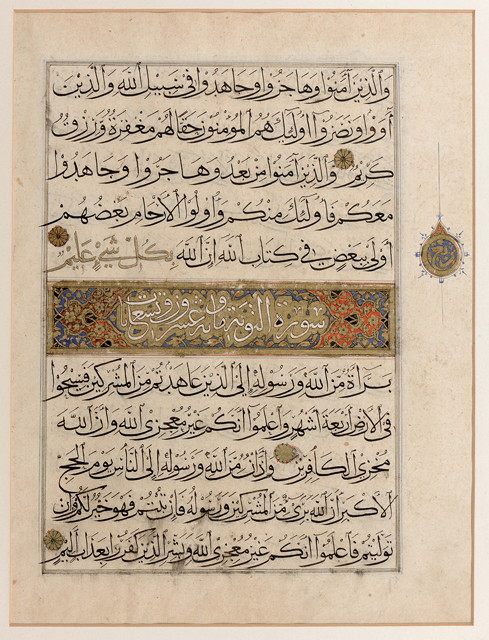 والذين آمنوا وهاجروا وجاهدوا في سبيل الله والذين
آووا ونصروا أولئك هم المؤمنون حقا لهم مغفرة ورزق
كريم والذين آمنوا من بعد وهاجروا وجاهدوا
معكم فأولئك منكم وأولوا الأرحام بعضهم
أولى ببعض في كتاب الله إن الله بكل شيء عليم
سورة التوبة مائة وعشرون وتسع آيات
براءة من الله ورسوله إلى الذين عاهدتم من المشركين فسيحوا
في الأرض أربعة أشهر واعلموا أنكم غير معجزي الله وأن الله
مخزي الكافرين وأذان من الله ورسوله إلى الناس يوم الحج
الأكبر أن الله بريء من المشركين ورسوله فإن تبتم فهو خير لكم وإن
توليتم فاعلموا أنكم غير معجزي الله وبشر الذين كفروا بعذاب أليم